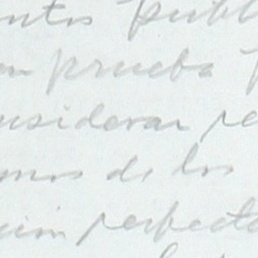 ntos publ
prueba
nsiderar re
mos de los
ion perfecta